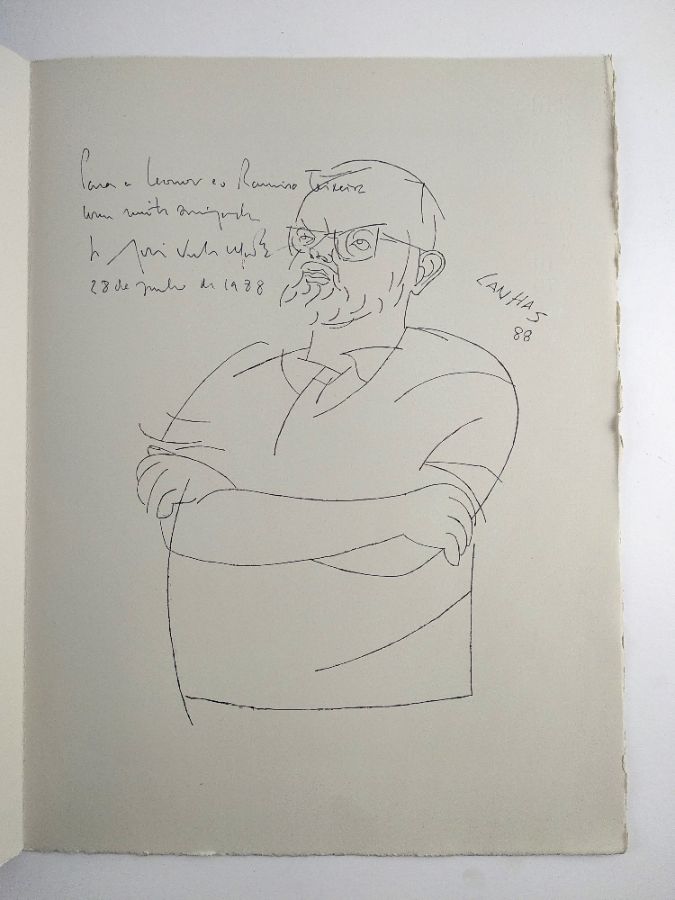 Para a Leonor e o Ramiro Teixeira
com muita amizade
José
28 de junho de 1988
CANHAS
88